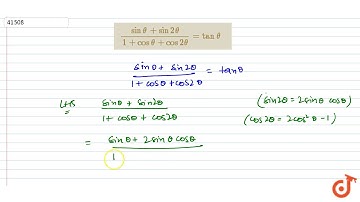 41508
sin θ + sin 2θ / 1 + cos θ + cos 2θ = tan θ
sinθ + sin2θ / 1 + cosθ + cos2θ = tanθ
LHS sinθ + sin2θ / 1 + cosθ + cos2θ (sin2θ = 2sinθ cosθ)
(cos2θ = 2cos²θ - 1)
= sinθ + 2sinθ cosθ / 1
doubtnut